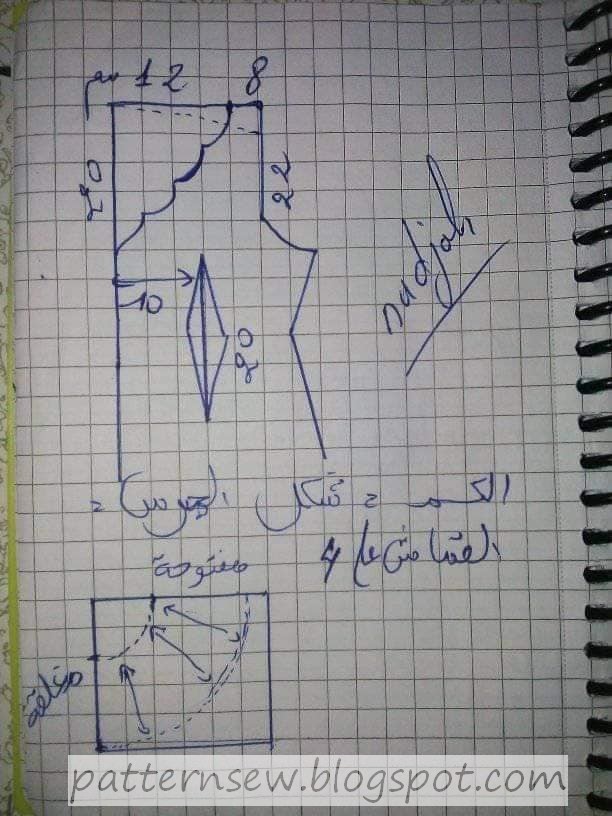 12 8
20
22
10
20
nadjah
الكم = شكل (جرس) =
القماش على 4
مفتوحة
مغلقة
patternsew.blogspot.com